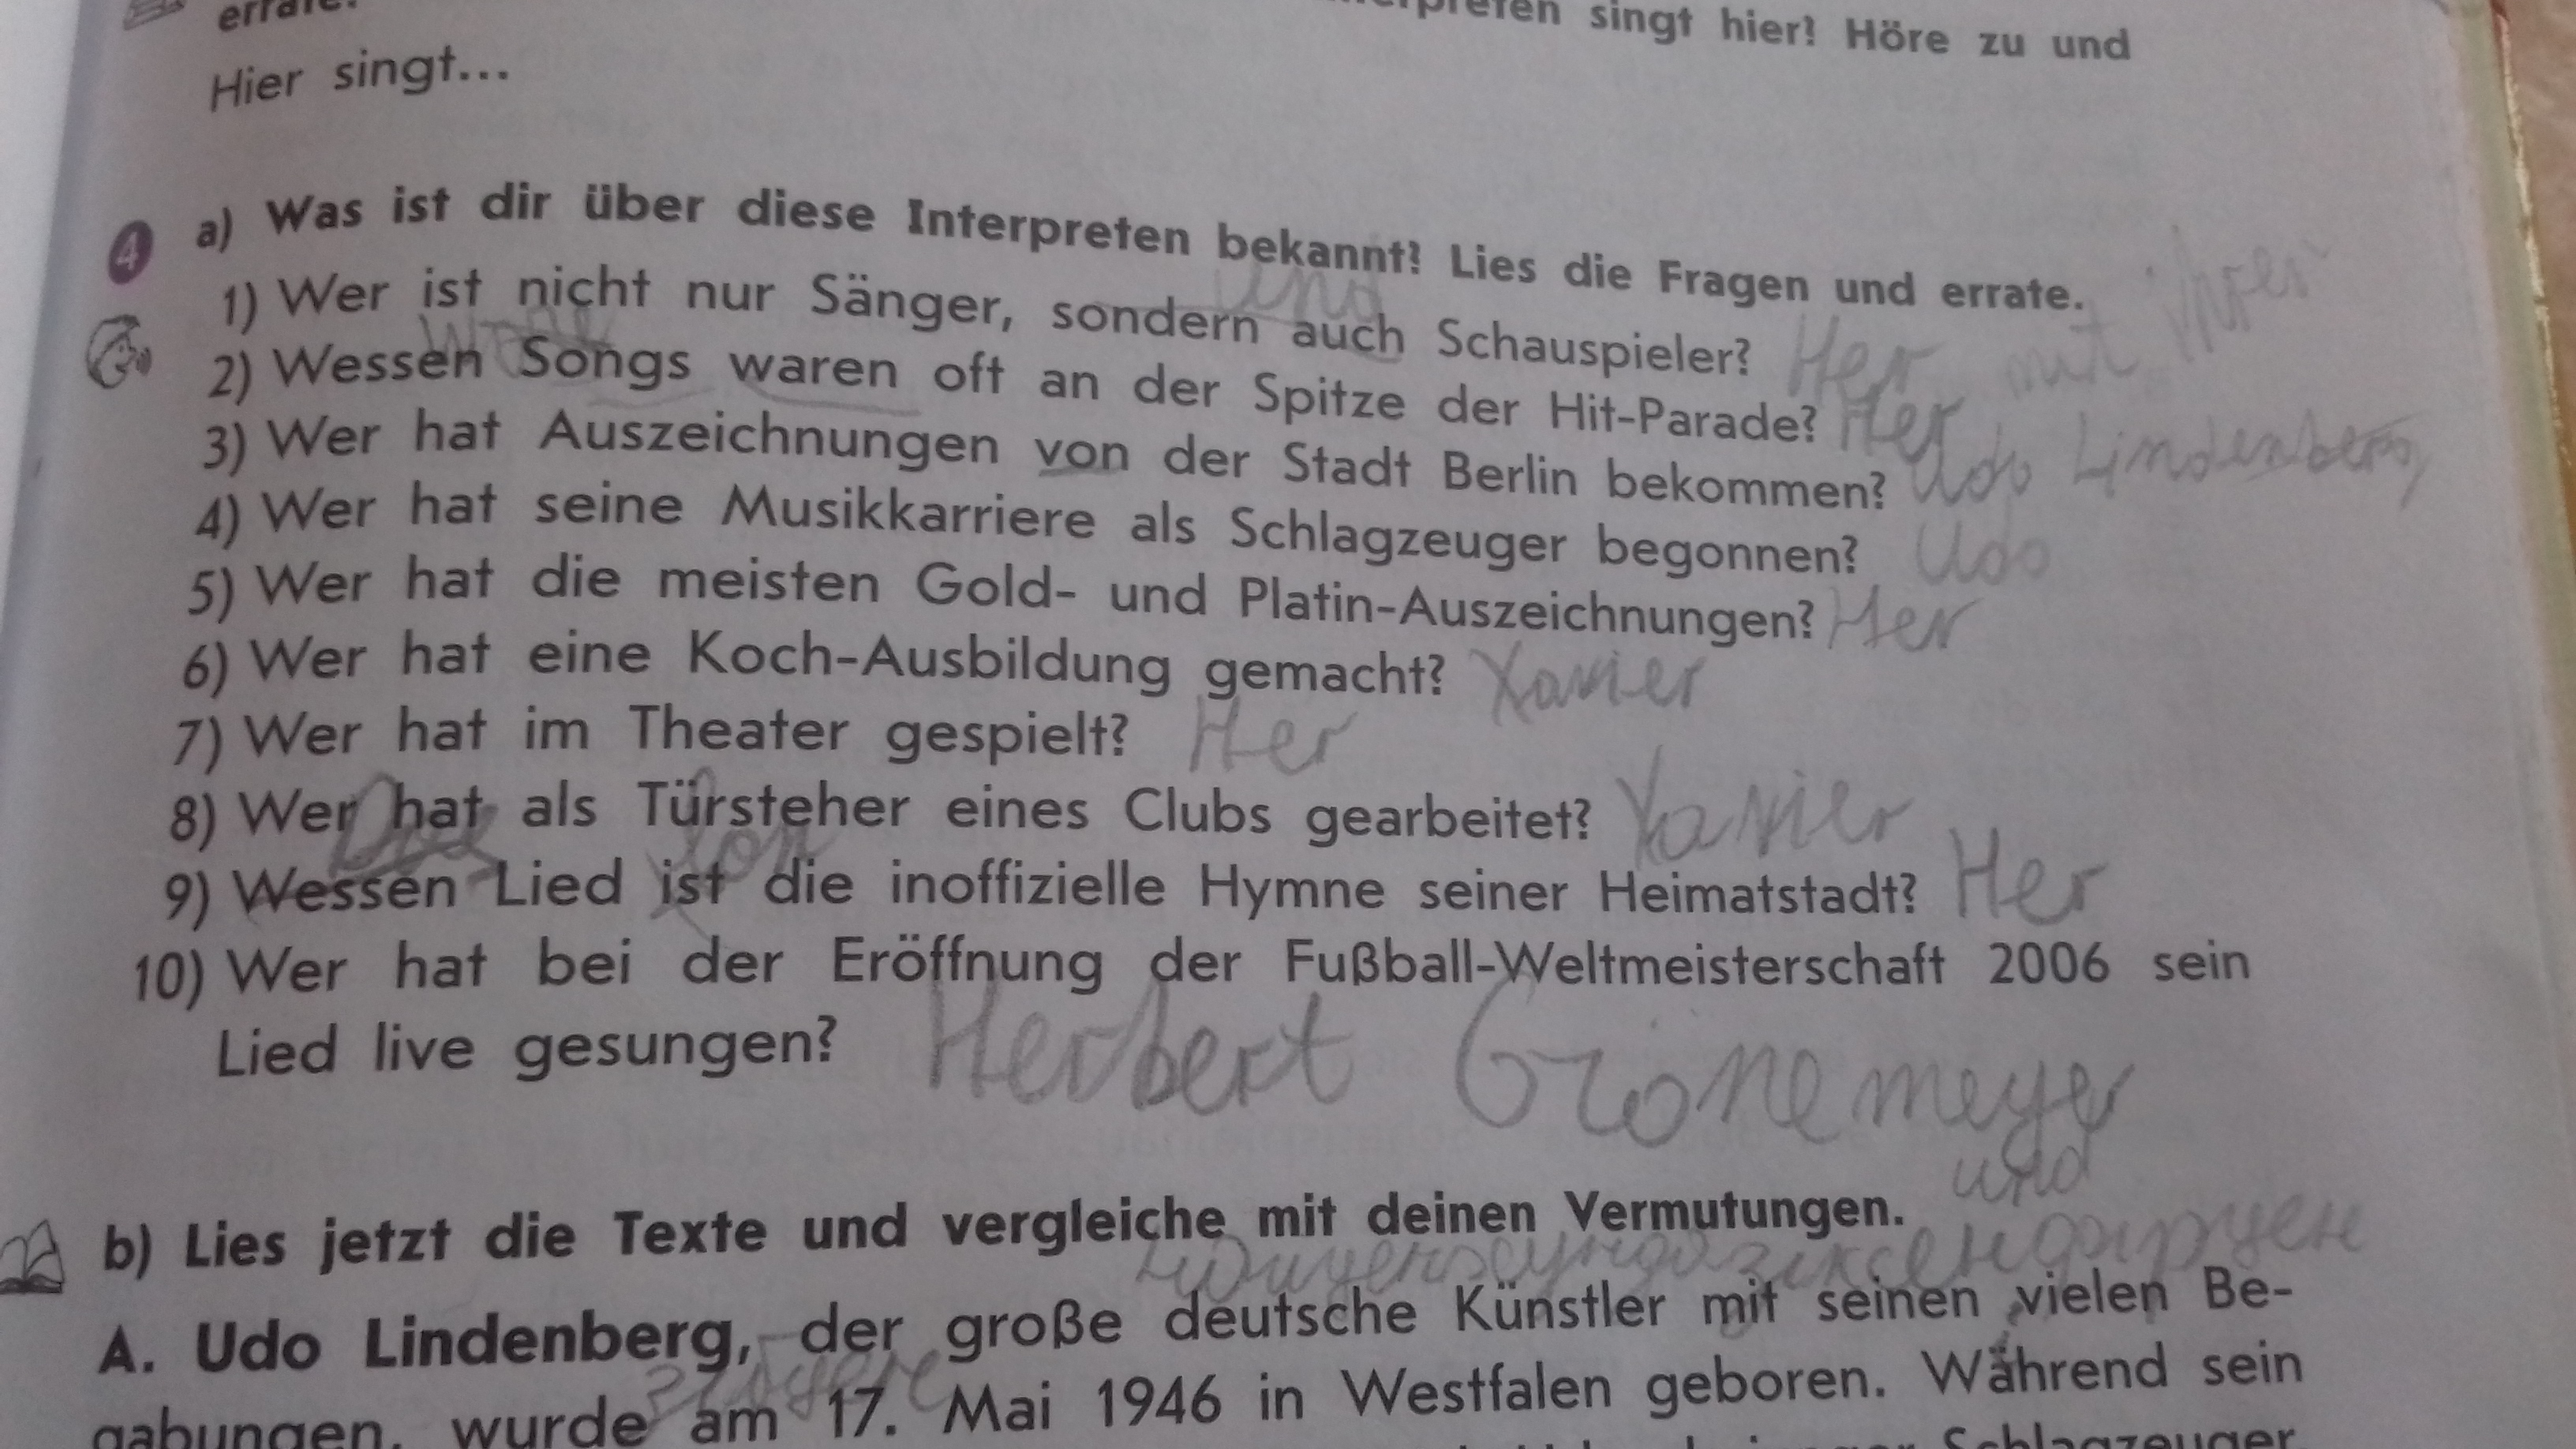 errate.
singt hier? Höre zu und
Hier singt...
4 a) Was ist dir über diese Interpreten bekannt? Lies die Fragen und errate.
1) Wer ist nicht nur Sänger, sondern auch Schauspieler? Her
2) Wessen Songs waren oft an der Spitze der Hit-Parade? Her
3) Wer hat Auszeichnungen von der Stadt Berlin bekommen? Udo Lindenberg
4) Wer hat seine Musikkarriere als Schlagzeuger begonnen? Udo
5) Wer hat die meisten Gold- und Platin-Auszeichnungen? Her
6) Wer hat eine Koch-Ausbildung gemacht? Xavier
7) Wer hat im Theater gespielt? Her
8) Wer hat als Türsteher eines Clubs gearbeitet? Xavier
9) Wessen Lied ist die inoffizielle Hymne seiner Heimatstadt? Her
10) Wer hat bei der Eröffnung der Fußball-Weltmeisterschaft 2006 sein
Lied live gesungen? Herbert Grönemeyer
und
b) Lies jetzt die Texte und vergleiche mit deinen Vermutungen.
A. Udo Lindenberg, der große deutsche Künstler mit seinen vielen Be-
gabungen, wurde am 17. Mai 1946 in Westfalen geboren. Während sein
Schlagzeuger